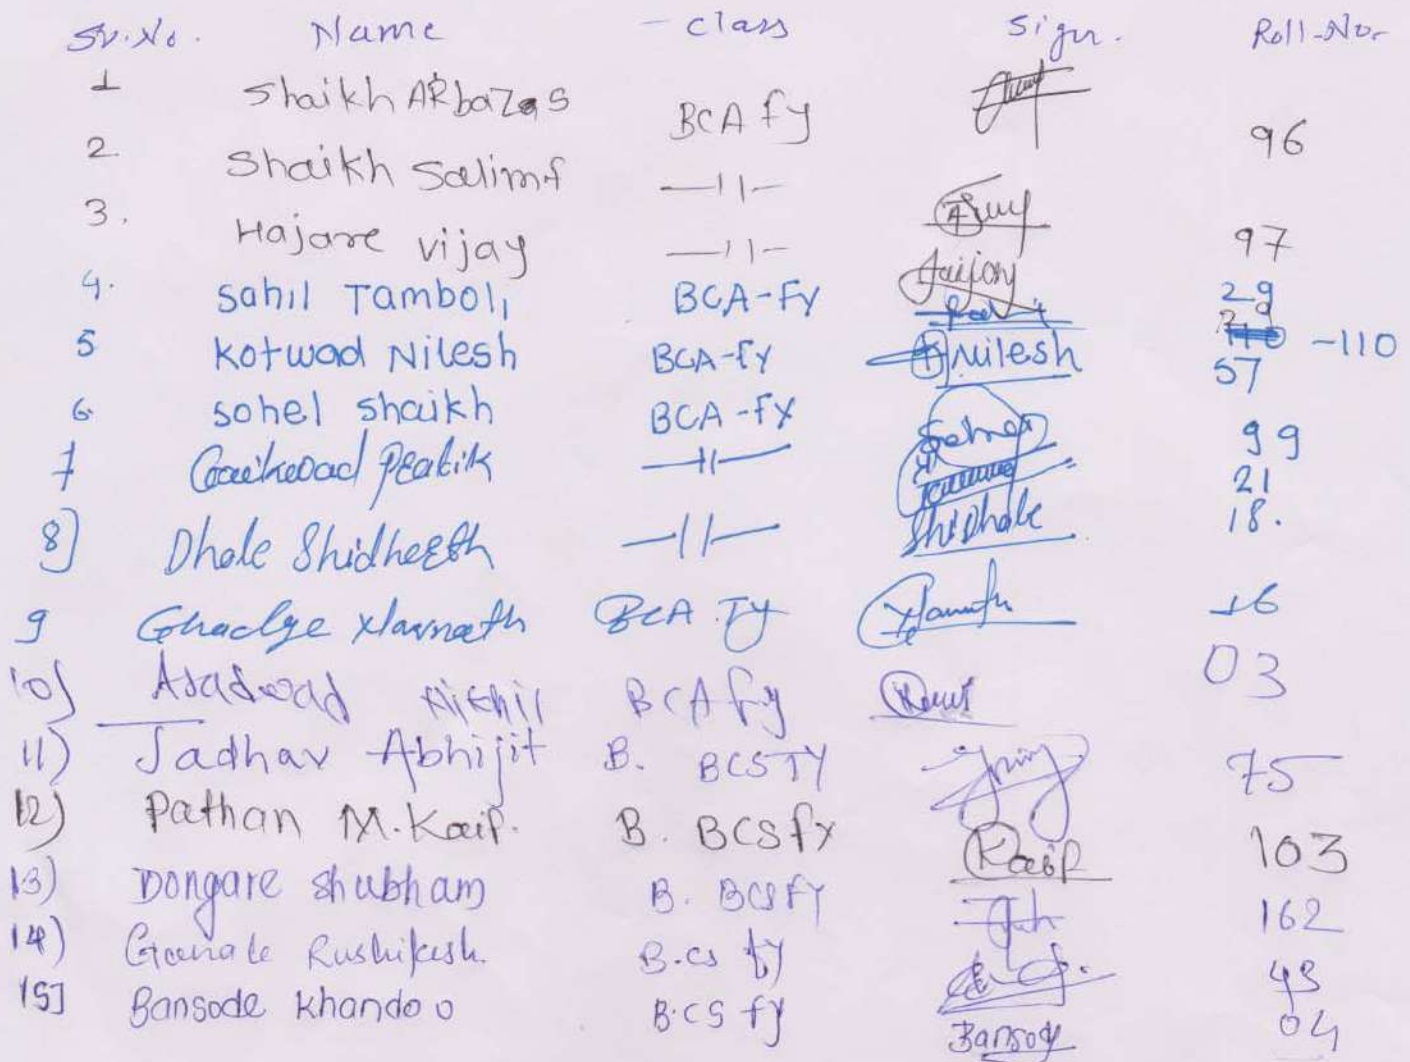 Sr.No. Name - class Sign. Roll-No.
1 Shaikh ARbaz S BCA fy 96
2. Shaikh Salim f —11—
3. Hajare vijay —11— 97
4. Sahil Tamboli BCA-Fy 29
5 Kotwad Nilesh BCA-fy Nilesh -110
6. Sohel Shaikh BCA-fy 57
7 Gaikwad Pratik —11— 99
21
8) Dhale —11— ShiDhale 18.
9 Ghadge BCA Ty 16
10) Nikhil BCA fy 03
11) Jadhav Abhijit B. BCS TY 75
12) Pathan M.Kaif. B. BCS fy Kaif 103
13) Dongare Shubham B. BCS fy 162
14) Rushikesh B.cs fy 43
15] Bansode Khandoo B.CS fy Bansode 04